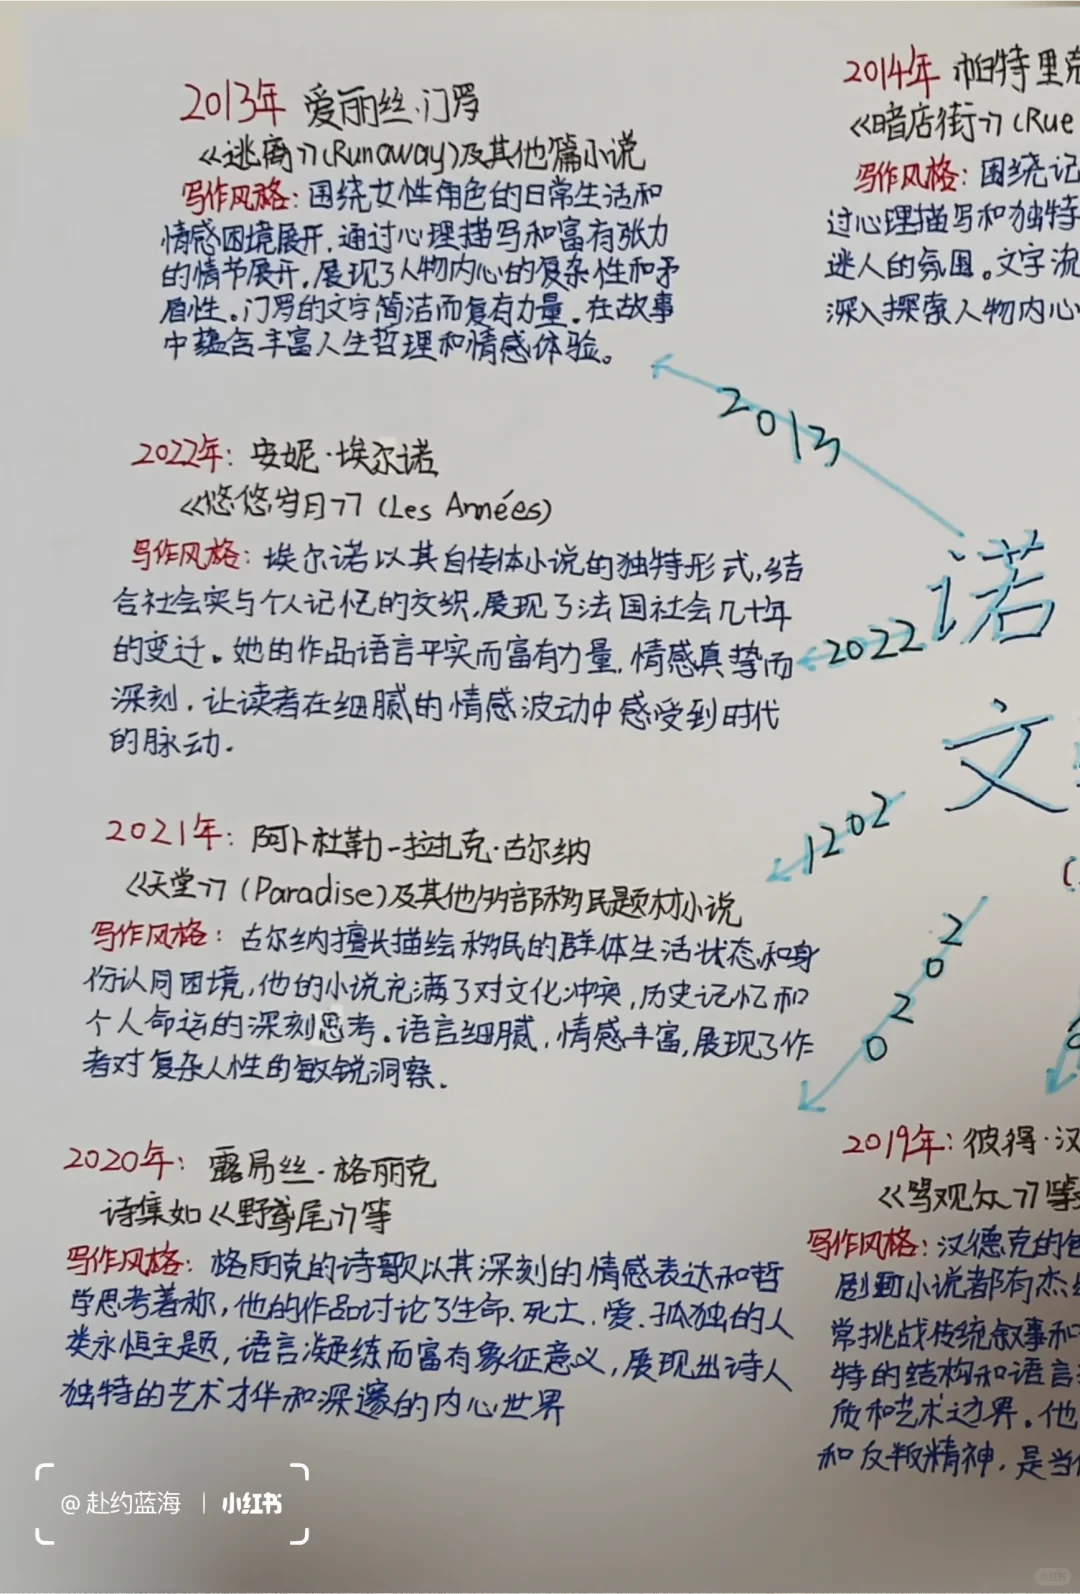 2013年 爱丽丝·门罗
《逃离》(Runaway)及其他篇小说
写作风格:围绕女性角色的日常生活和
情感困境展开,通过心理描写和富有张力
的情节展开,展现了人物内心的复杂性和矛
盾性。门罗的文字简洁而复有力量,在故事
中蕴含丰富人生哲理和情感体验。
2014年 帕特里克
《暗店街》(Rue
写作风格:围绕记
过心理描写和独特
迷人的氛围。文字流
深入探索人物内心
2013
2022年:安妮·埃尔诺
《悠悠岁月》(Les Années)
写作风格:埃尔诺以其自传体小说的独特形式,结
合社会实与个人记忆的交织,展现了法国社会几十年
的变迁。她的作品语言平实而富有力量,情感真挚而
深刻,让读者在细腻的情感波动中感受到时代
的脉动.
诺
2022
文
2021年:阿卜杜勒-拉扎克·古尔纳
《天堂》(Paradise)及其他多部移民题材小说
写作风格:古尔纳擅长描绘移民的群体生活状态和身
份认同困境,他的小说充满了对文化冲突,历史记忆和
个人命运的深刻思考。语言细腻,情感丰富,展现了作
者对复杂人性的敏锐洞察.
2021
2020
2020年:露易丝·格丽克
诗集如《野鸢尾》等
写作风格:格丽克的诗歌以其深刻的情感表达和哲
学思考著称,他的作品讨论了生命、死亡、爱、孤独的人
类永恒主题,语言凝练而富有象征意义,展现出诗人
独特的艺术才华和深邃的内心世界
2019年:彼得·汉
《骂观众》等
写作风格:汉德克的
剧到小说都有杰
常挑战传统叙事和
特的结构和语言
质和艺术边界。他
和反叛精神,是当
@赴约蓝海 | 小红书
小红书